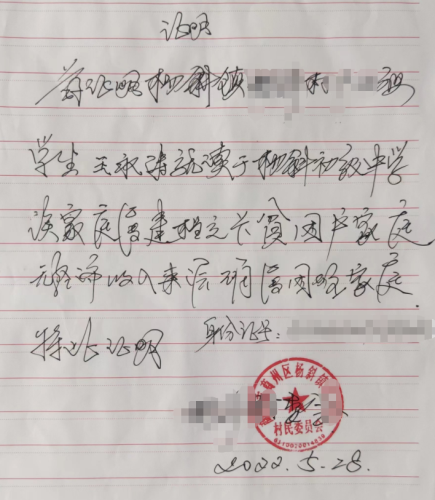 证明
兹证明杨斜镇 村 组
学生王 就读于杨斜初级中学
该家庭 建档立卡贫困户家庭
无经济收入来源 困难家庭.
特此证明
身份证号:
商州区杨斜镇
村民委员会
2022.5.28.